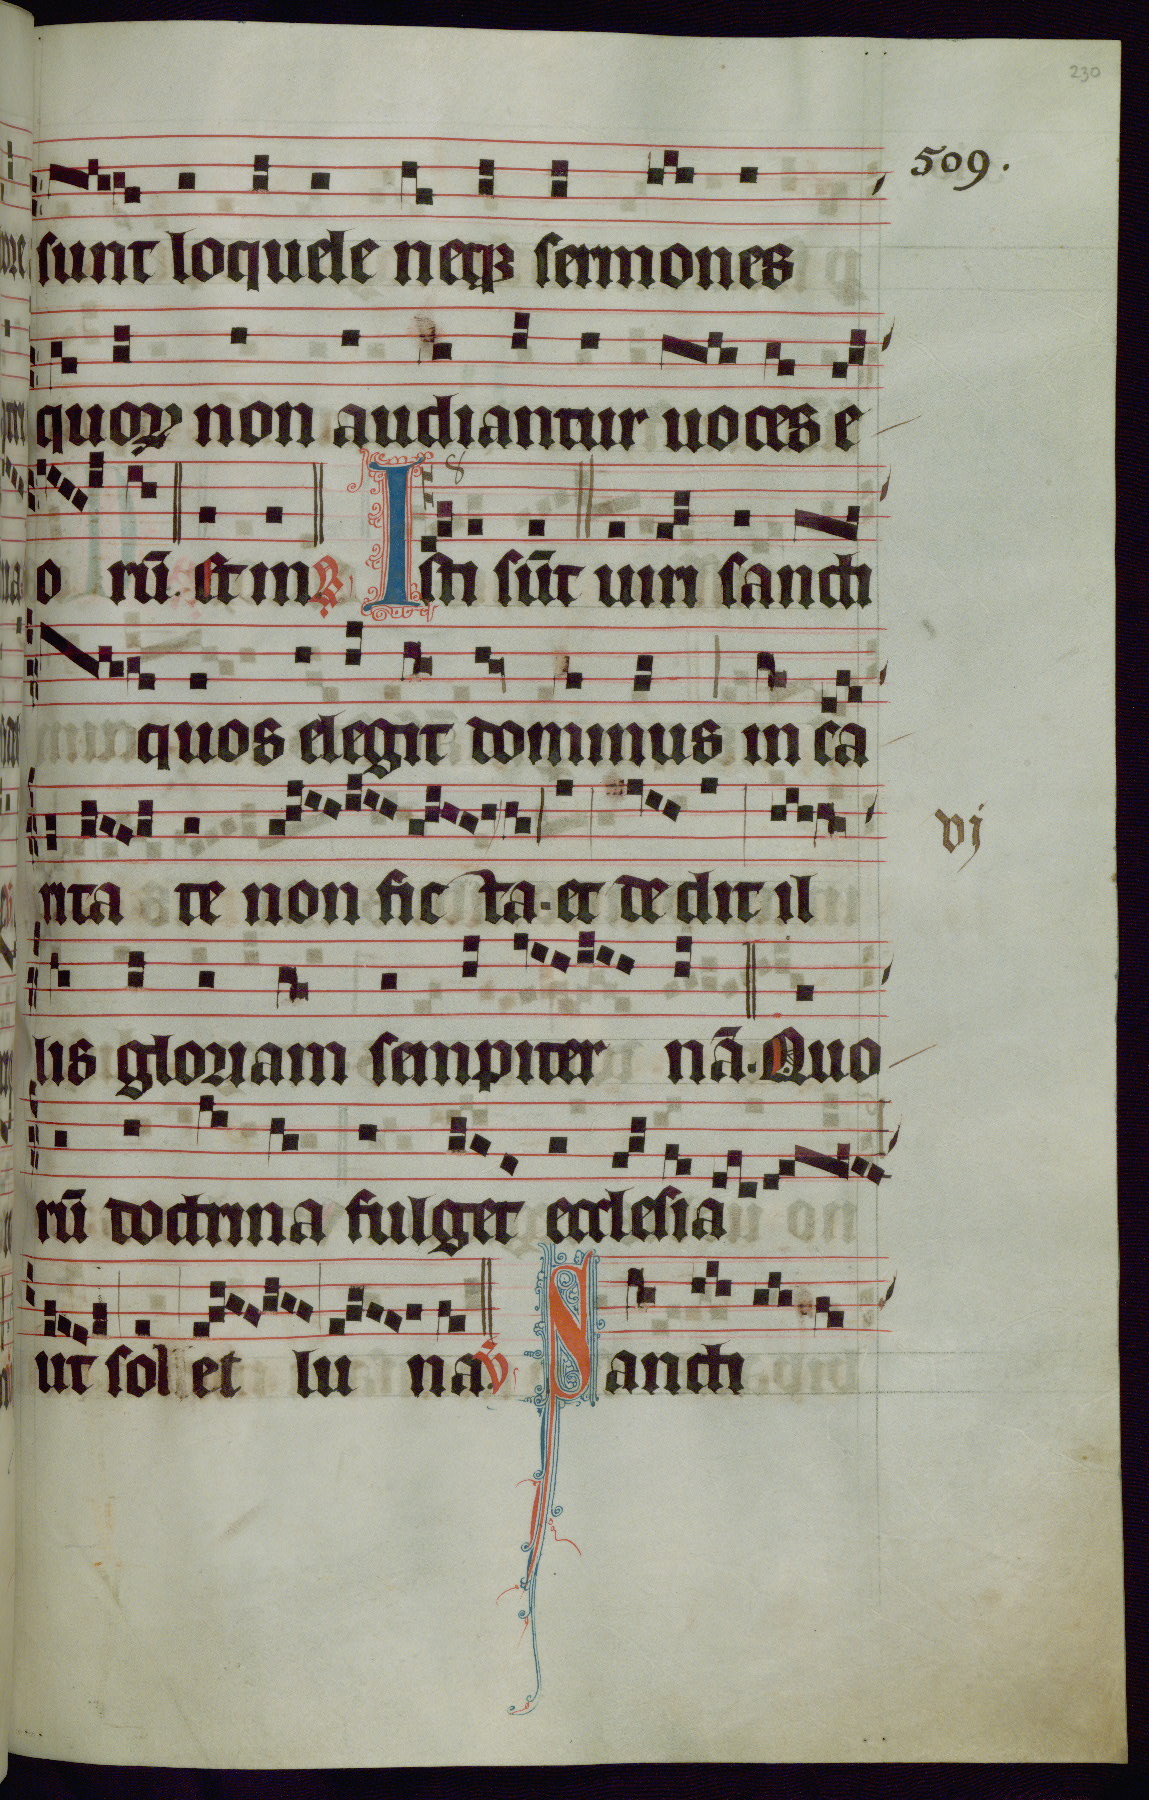 230
509.
sunt loquele neqꝫ sermones
quoꝝ non audiantur uoces e
o rū. Et in ℟ Isti sūt uiri sancti
quos elegit dominus in ca
rita te non fic ta. et dedit il
vj
lis gloriam sempiter nā. Quo
rū doctrina fulget ecclesia
ut sol et lu na. ℣ Sancti